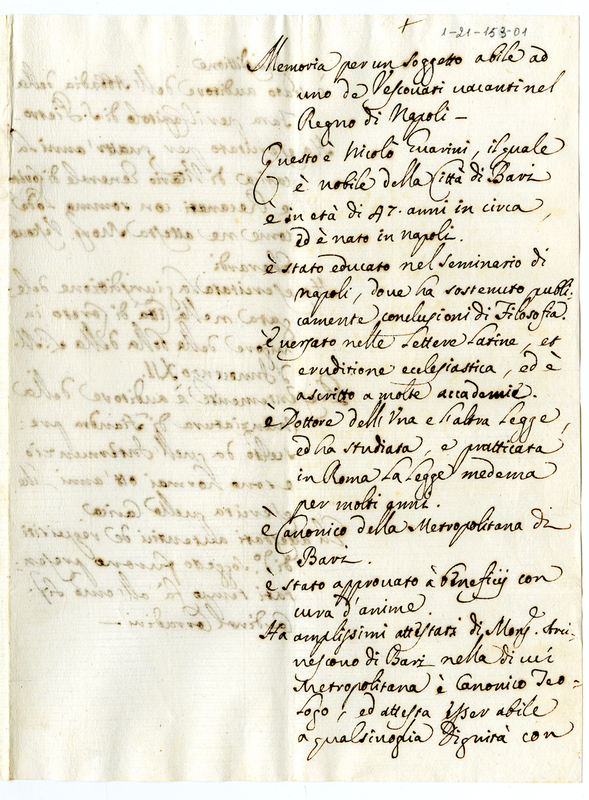 +
1-21-153-01
Memoria per un soggetto abile ad
uno de Vescovati vacanti nel
Regno di Napoli –
Questo è Nicolò Guarini, il quale
è nobile della Città di Bari
è in età di 47. anni in circa,
ed è nato in Napoli.
è stato educato nel seminario di
Napoli, dove ha sostenuto publi-
camente conclusioni di Filosofia.
È versato nelle Lettere Latine, et
eruditione ecclesiastica, ed è
ascritto a molte accademie.
è Dottore dell'Una e l'altra Legge,
ed ha studiata, e pratticata
in Roma La Legge medema
per molti anni.
è Canonico della Metropolitana di
Bari.
è stato approvato à beneficij con
cura d'anime.
Ha amplissimi attestati di Mons.e Arci-
vescovo di Bari nella di cui
Metropolitana è Canonico Teo=
logo, ed attesta esser abile
a qualsivoglia Dignità con